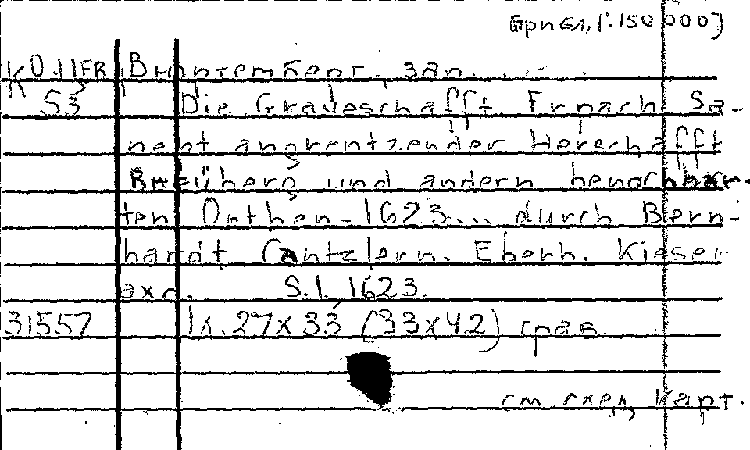 [:150 000]
К 0 11FR Вюртемберг, зап.
53 Die Graveschafft Erpach Sa-
nebt angrentzender Herschafft
Breüberg und andern benachbar-
ten Orthen-1623... durch Bern-
hardt Cantzlern. Eberh. Kieser
exc. S.l. 1623.
31557 1 л. 27x33 (33x42) грав.
см. сист. Карт.